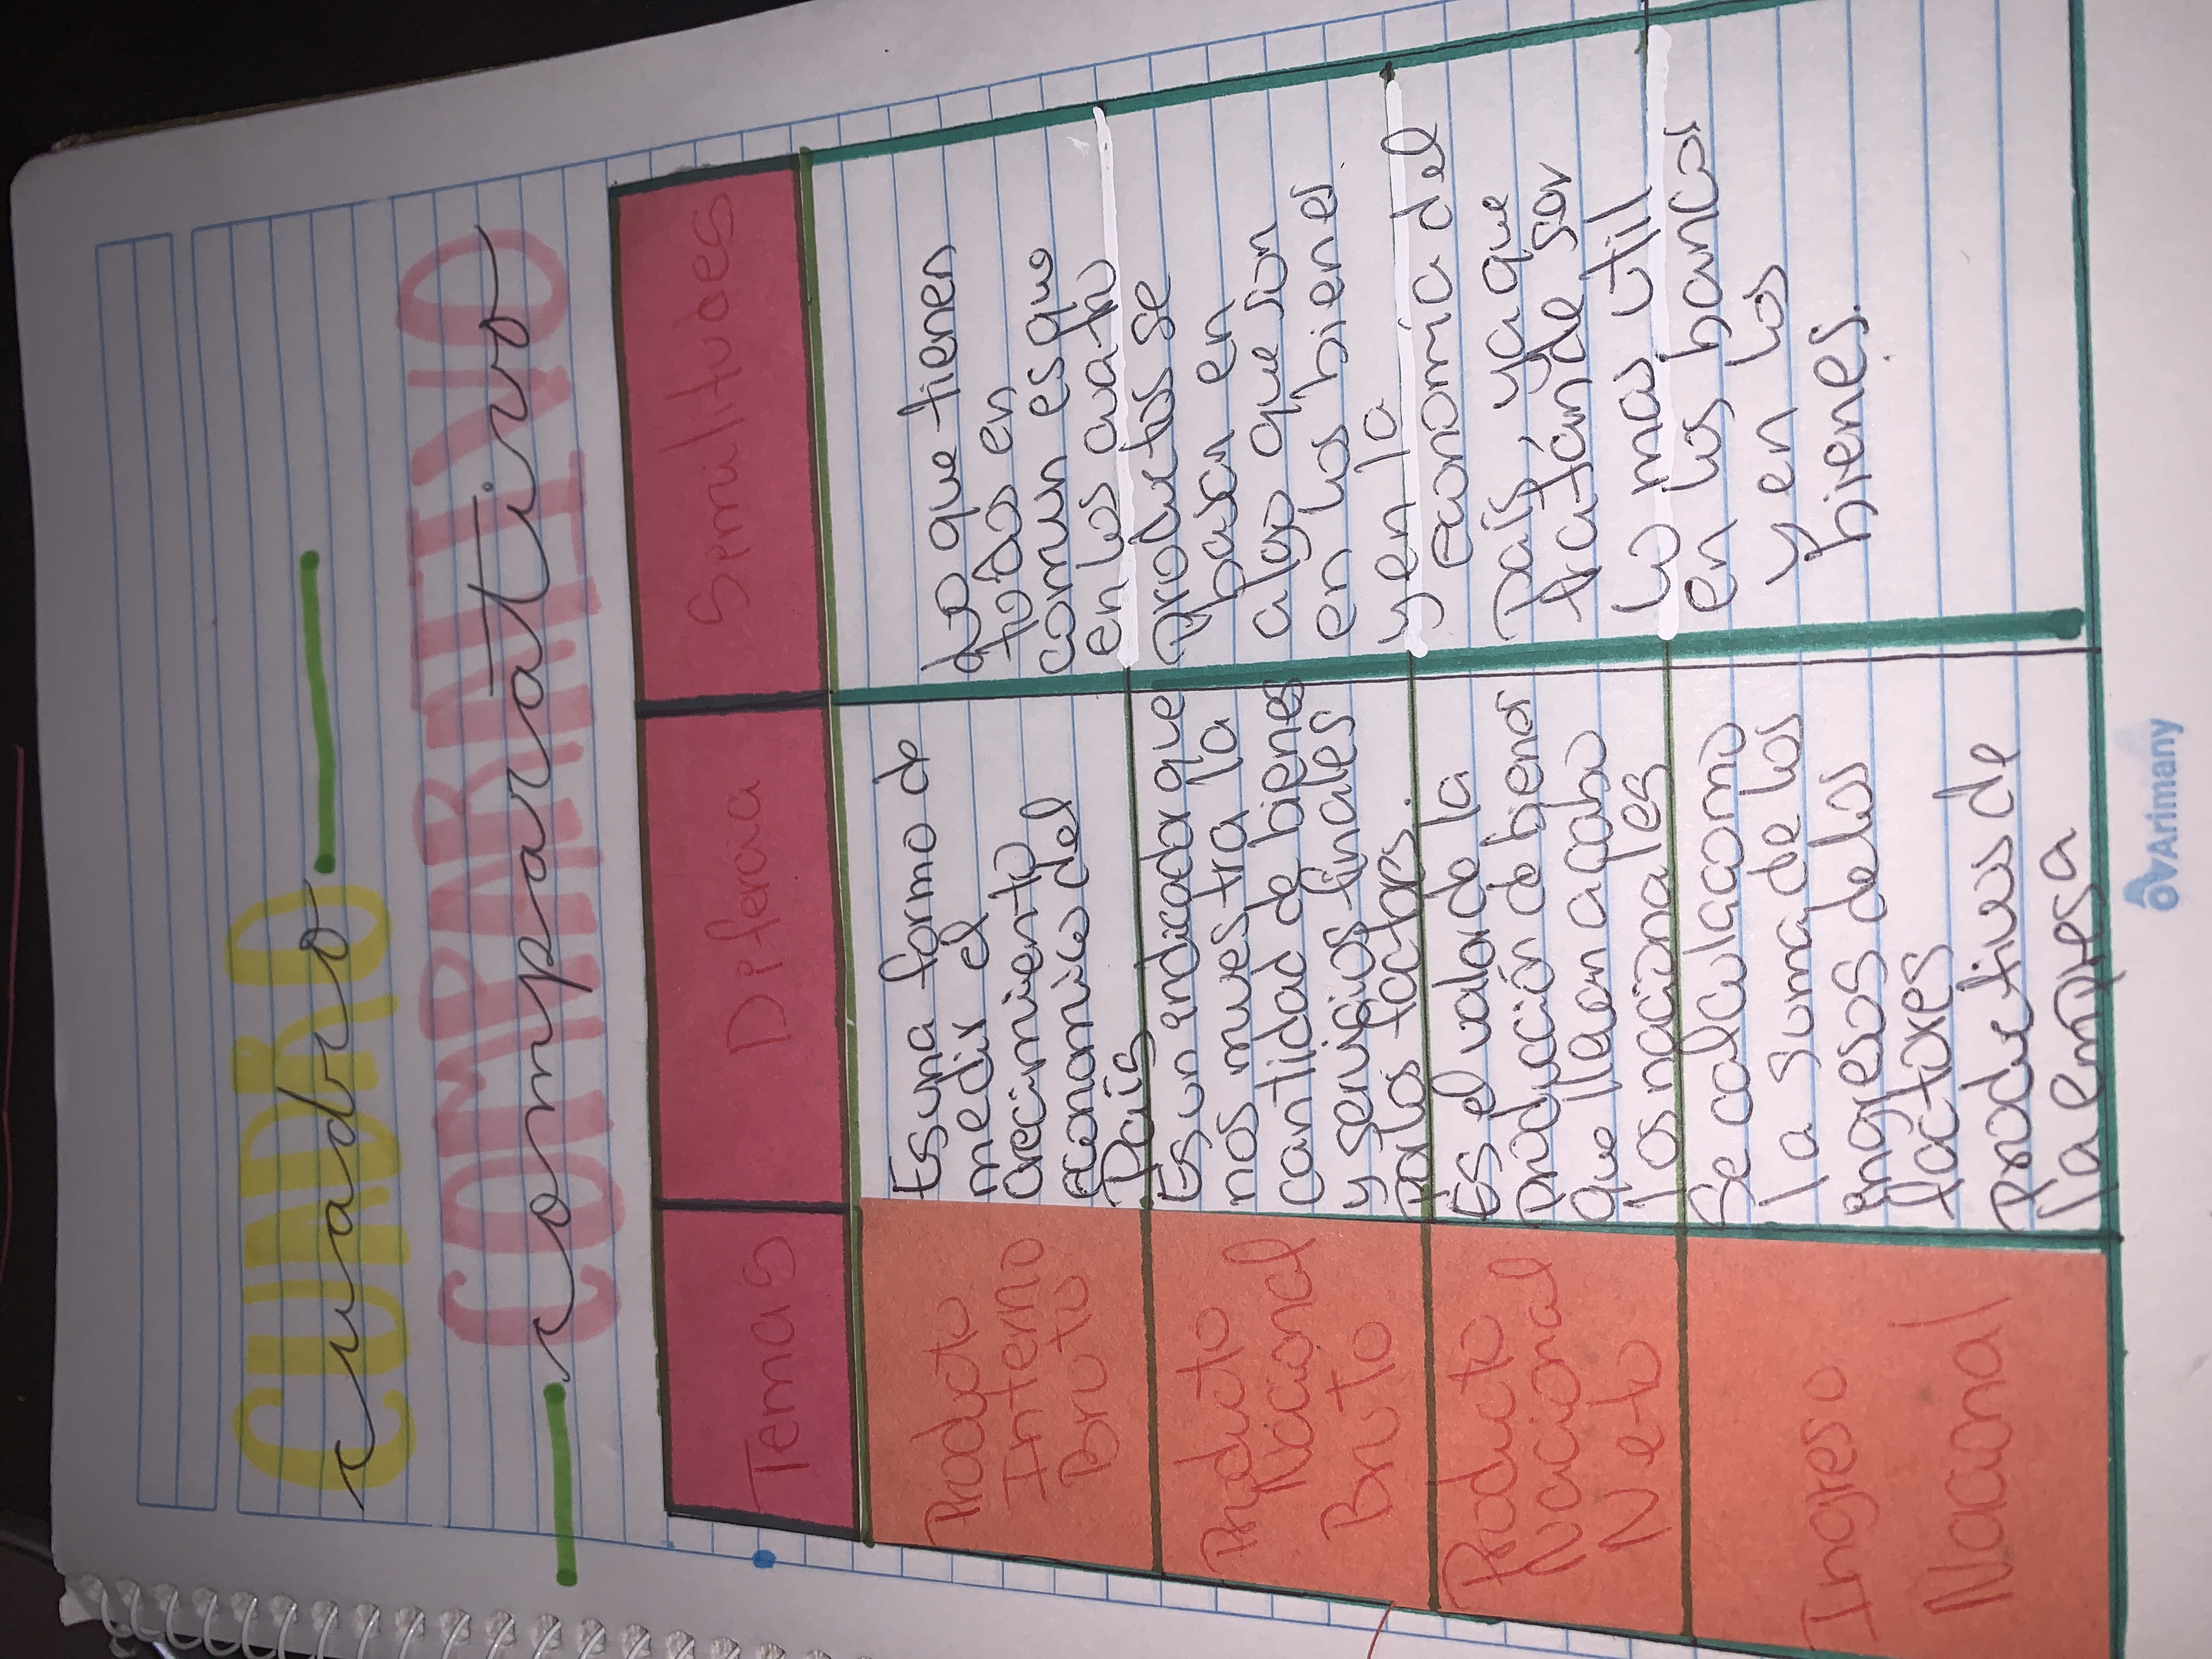 CUADRO
cuadro
COMPARATIVO
comparativo
Temas
Diferecia
Similitudes
Producto
Interno
Bruto
Es una forma de
medir el
crecimiento
economico del
País
Lo que tienen
todos en
comun es que
en los cuatro
productos se
basan en
algo que son
en los bienes
y en la
economía del
País, ya que
tratán de ser
lo mas util
en los bancos
y en los
bienes.
Producto
Nacional
Bruto
Es un indicador que
nos muestra la
cantidad de bienes
y servicios finales
factores.
Producto
Nacional
Neto
Es el valor de la
producción de bienes
que llevan acabo
los nacionales
Ingreso
Nacional
Se calcula como
la suma de los
ingresos de los
factores
Productivos de
la empresa
Arimany